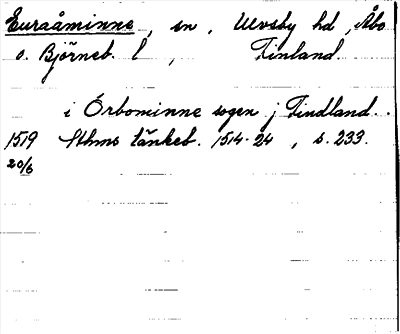 Euraåminne, sn, Ulvsby hd, Åbo
o. Björneb. l, Finland.
i Örbominne sogen j Findland.
1519 Sthms tänkeb. 1514-24, s. 233.
20/6